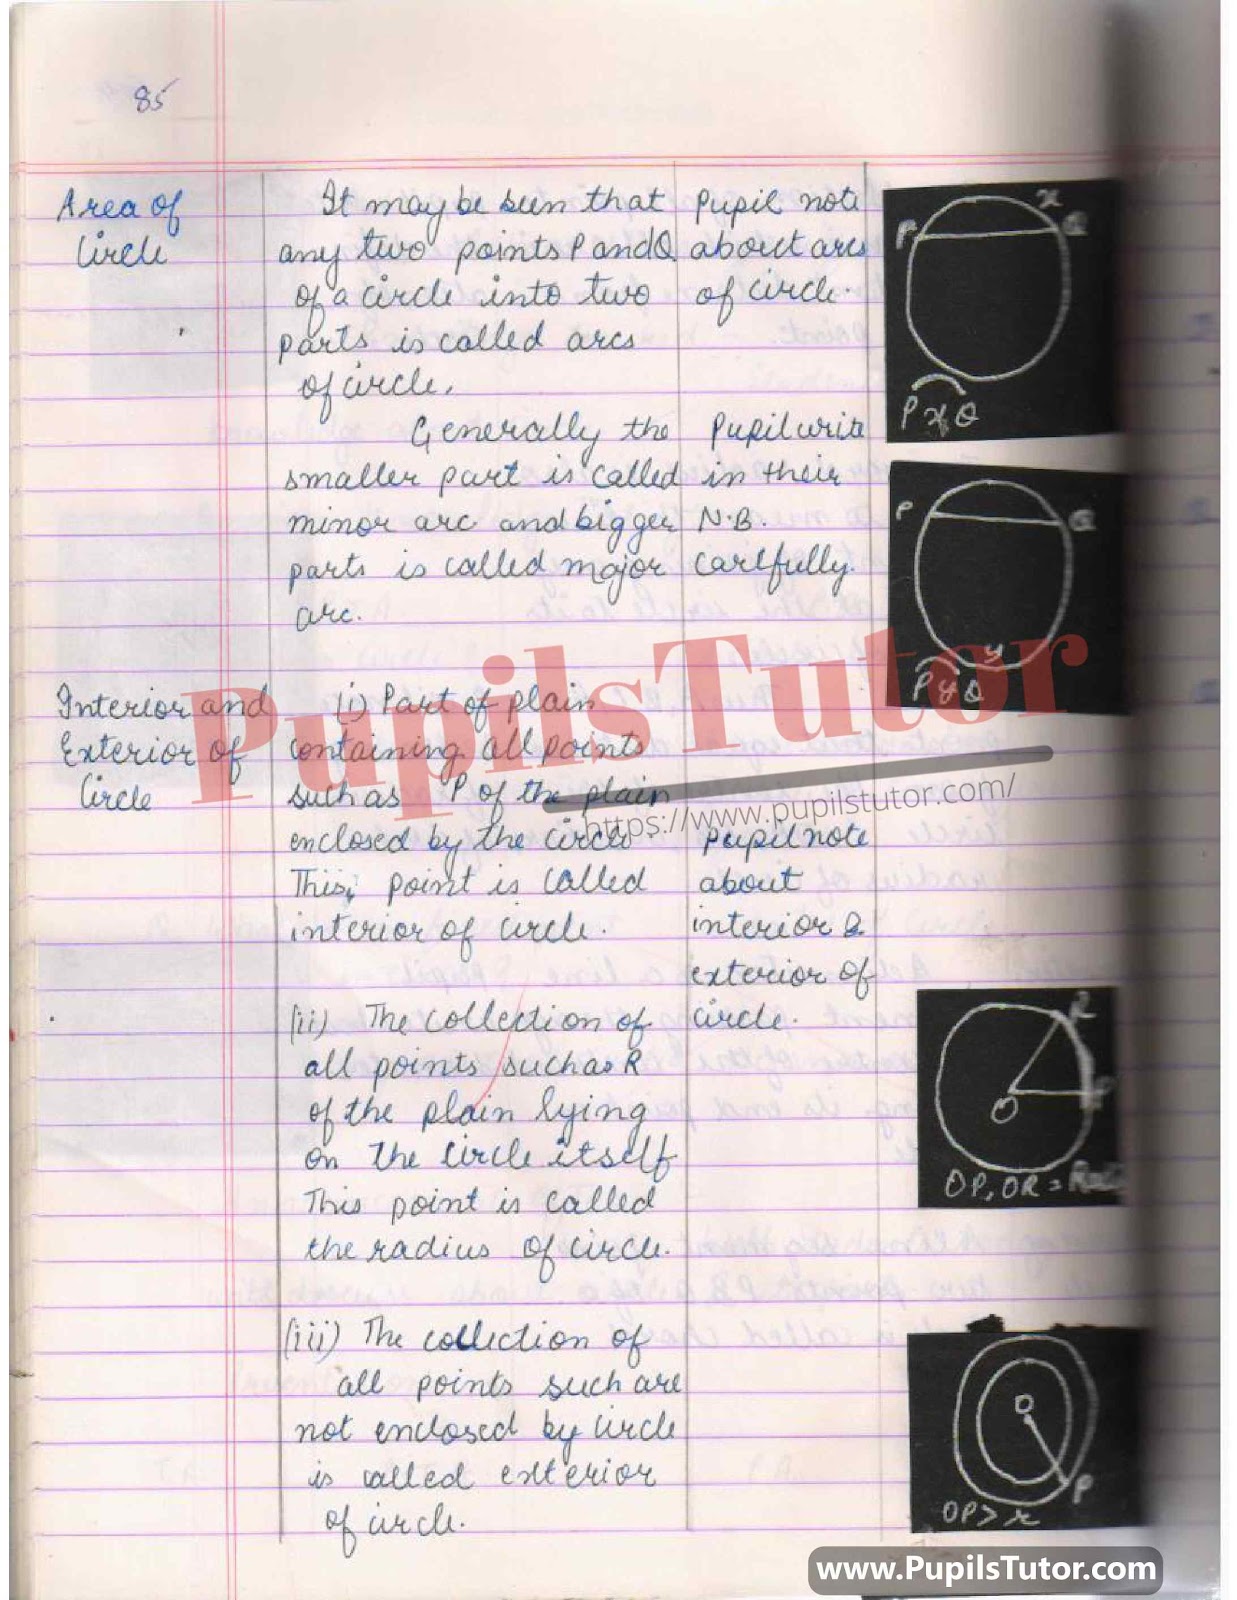 85
Area of
Circle
It may be seen that
any two points P and Q
of a circle into two
parts is called arcs
of circle.
Generally the
smaller part is called
minor arc and bigger
parts is called major
arc.
Pupil note
about arcs
of circle.
Pupil write
in their
N.B.
carlfully.
x
P Q
P x Q
P Q
y
P y Q
Interior and
Exterior of
Circle
(i) Part of plain
containing all points
such as P of the plain
enclosed by the circle
This, point is called
interior of circle.
(ii) The collection of
all points such as R
of the plain lying
on the circle itself
This point is called
the radius of circle.
(iii) The collection of
all points such are
not enclosed by circle
is called exterior
of circle.
Pupil note
about
interior &
exterior of
circle.
R
O P
OP, OR =
O
P
OP > r
PupilsTutor
https://www.pupilstutor.com/
www.PupilsTutor.com